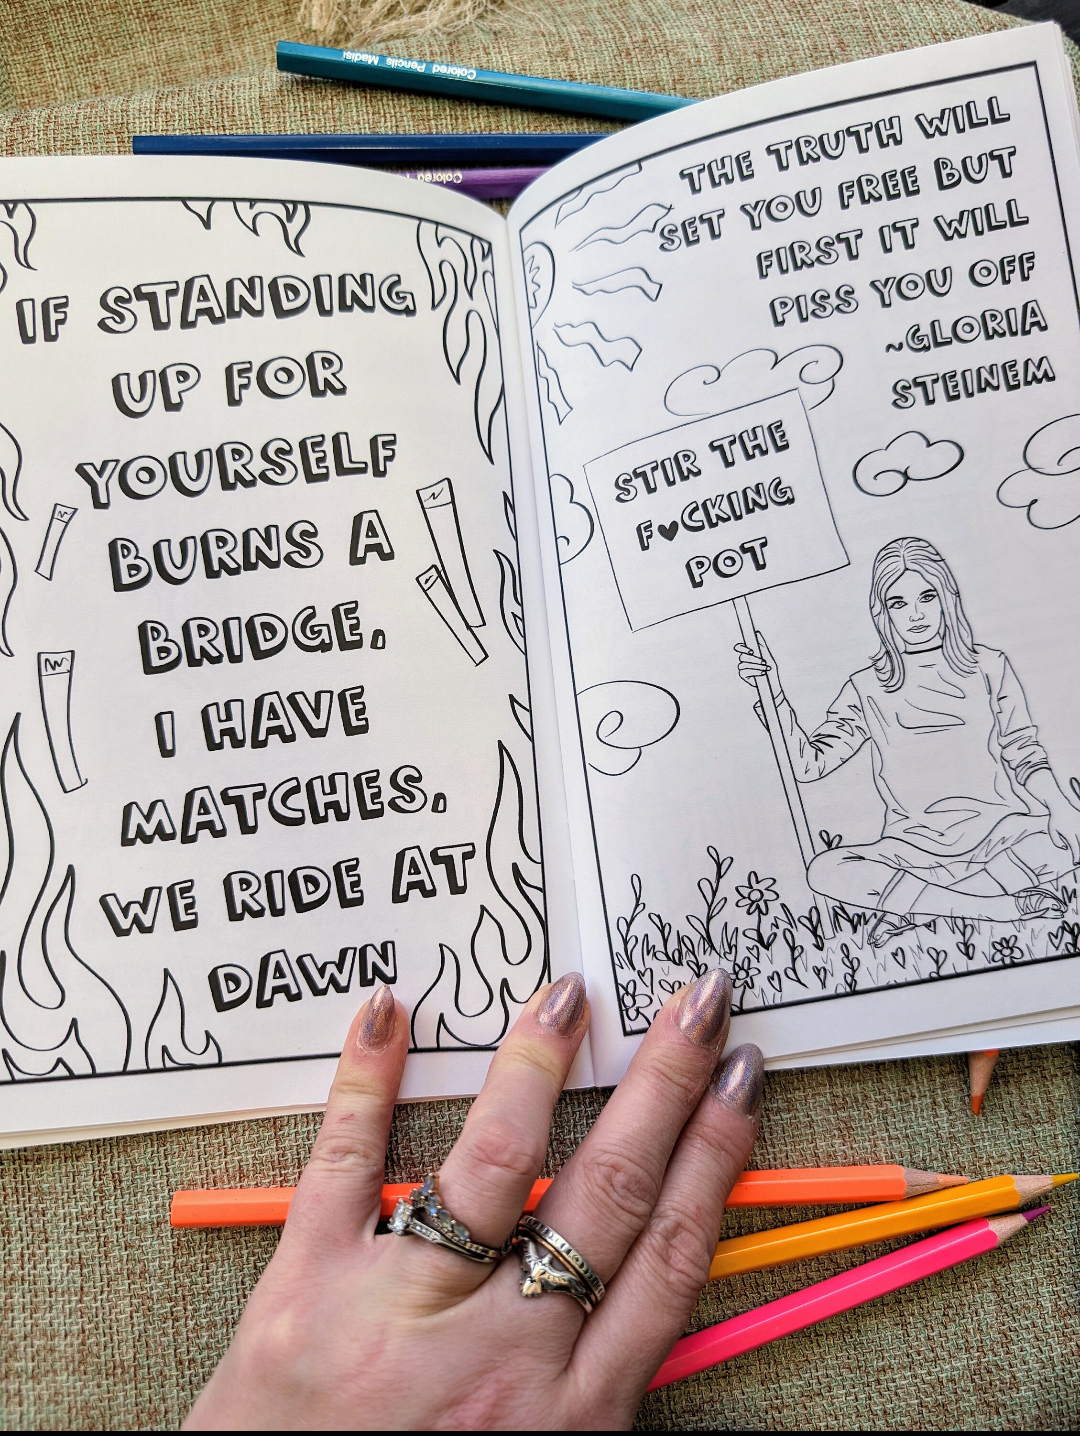 Colored Pencils Madisi
Colored
IF STANDING
UP FOR
YOURSELF
BURNS A
BRIDGE,
I HAVE
MATCHES,
WE RIDE AT
DAWN
THE TRUTH WILL
SET YOU FREE BUT
FIRST IT WILL
PISS YOU OFF
~GLORIA
STEINEM
STIR THE
F♥CKING
POT